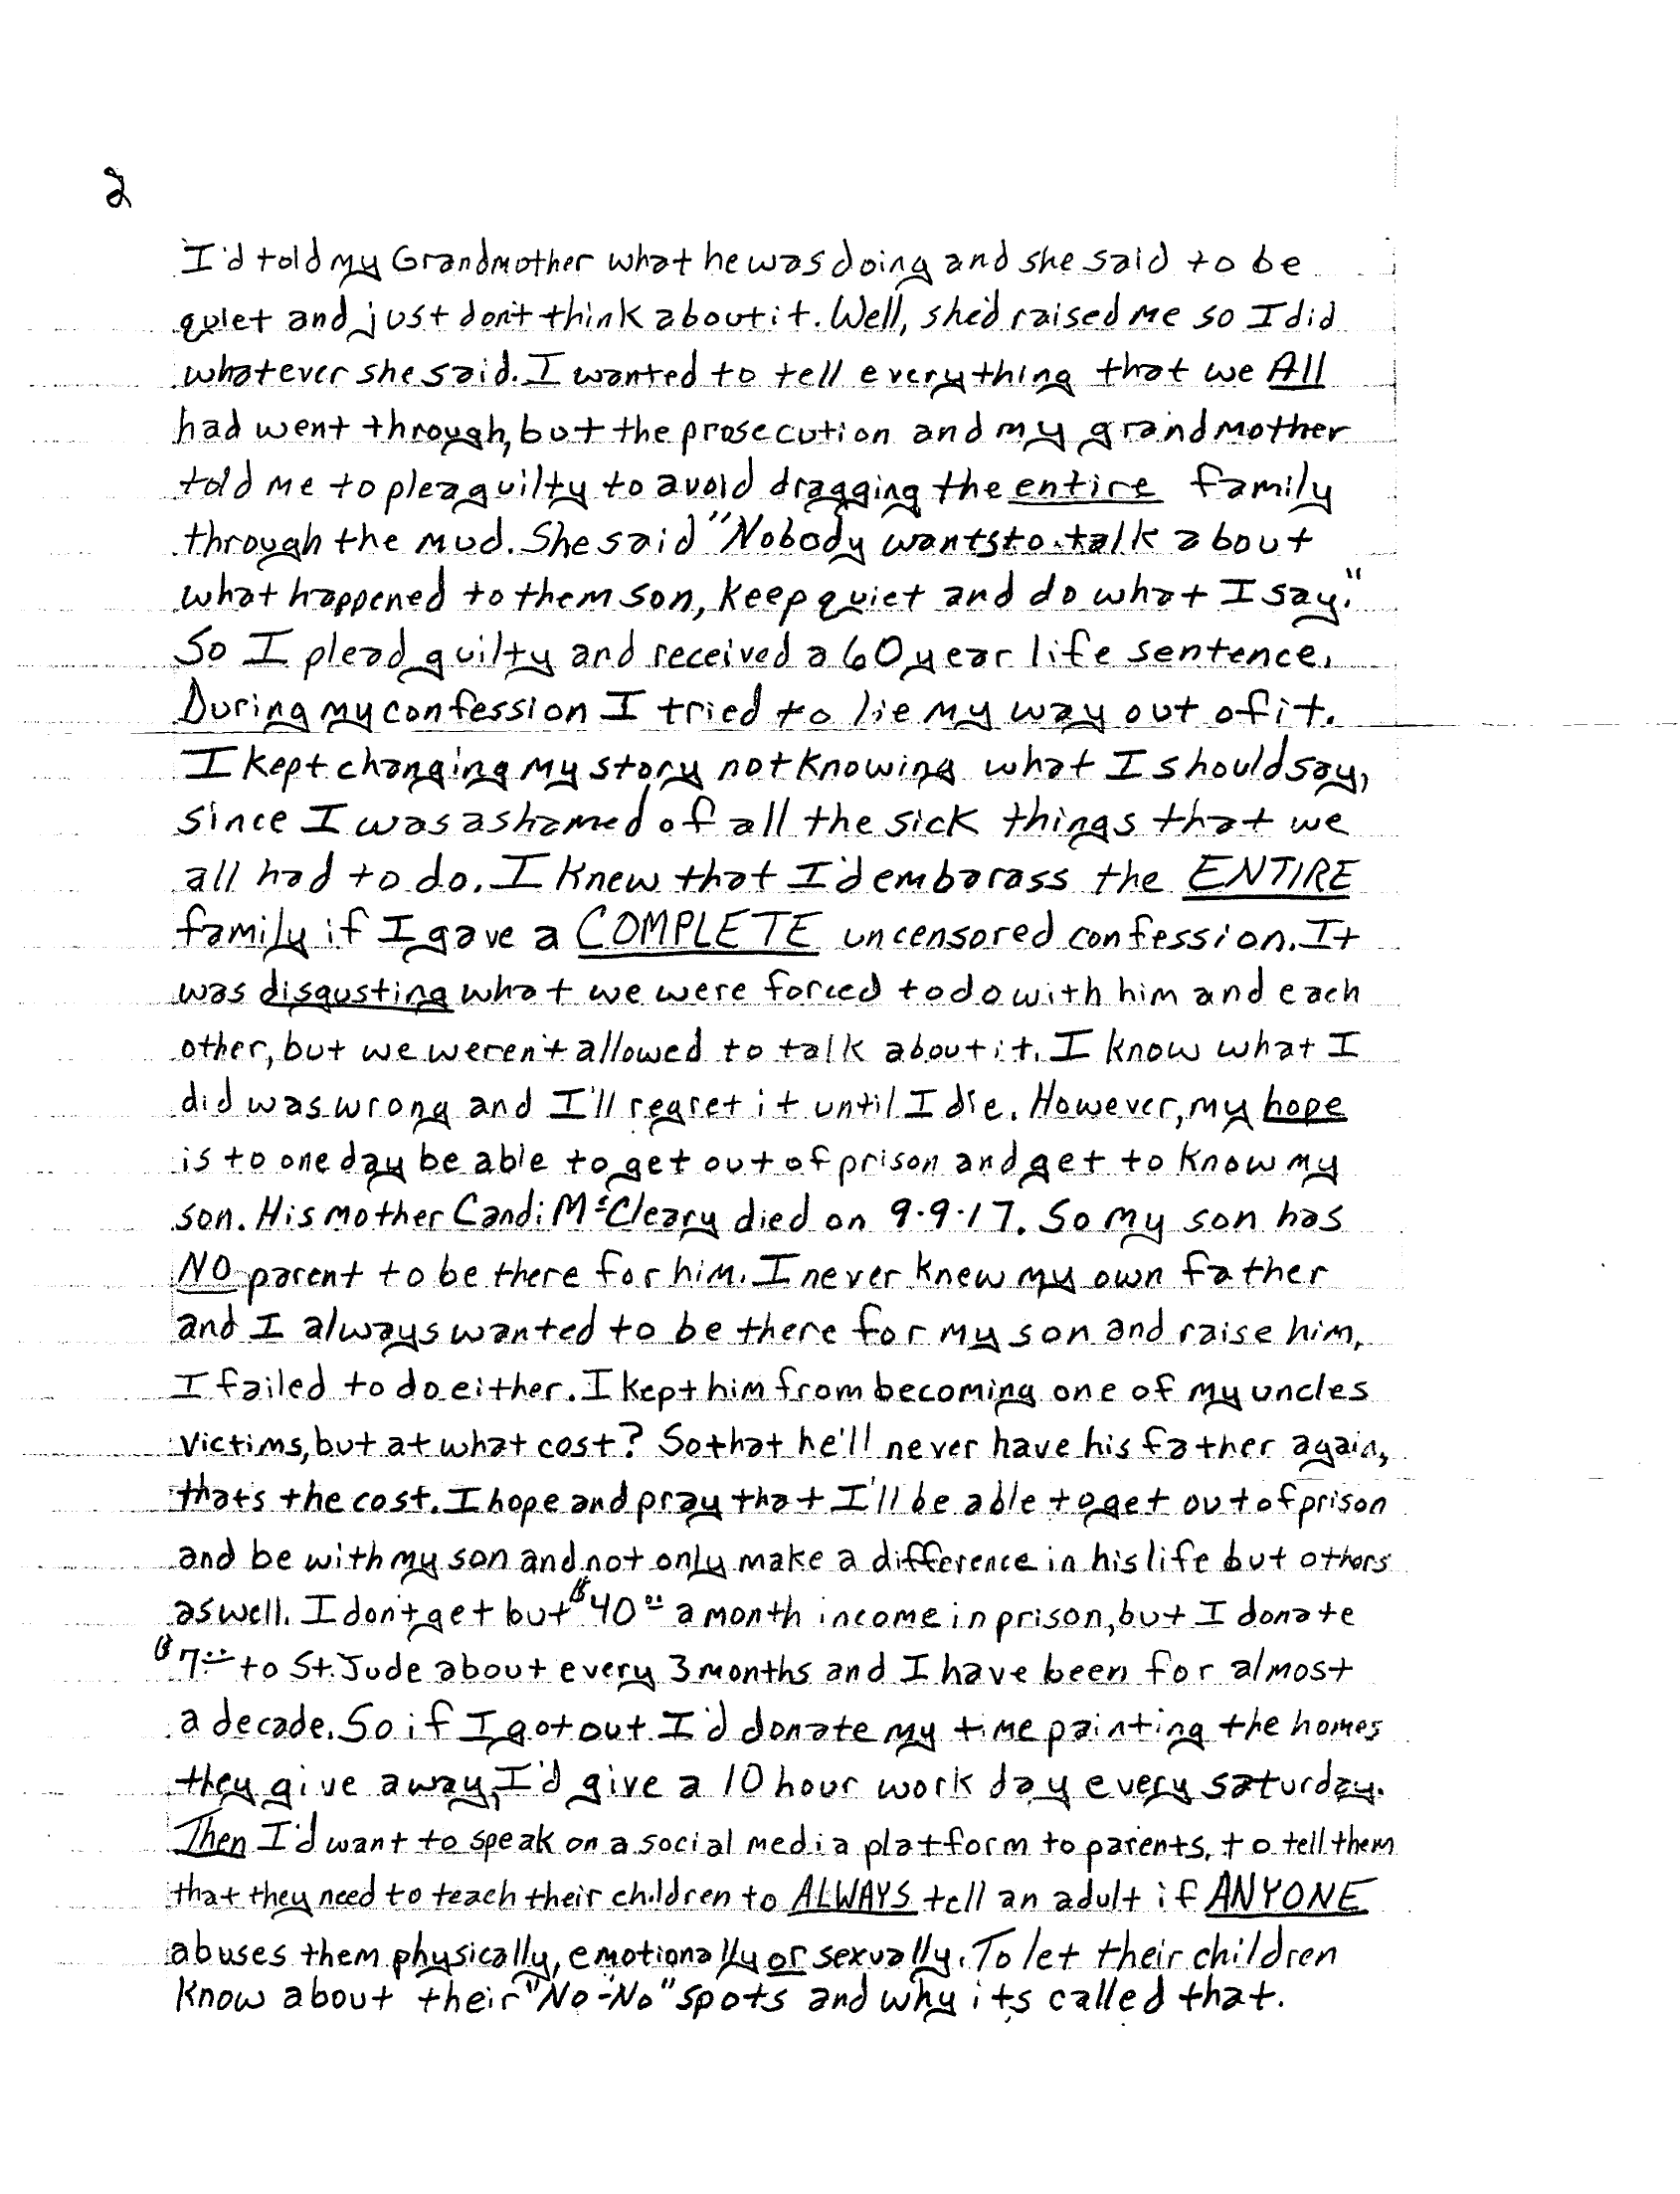 2
I'd told my Grandmother what he was doing and she said to be
quiet and just don't think about it. Well, she'd raised me so I did
whatever she said. I wanted to tell everything that we All
had went through, but the prosecution and my grandmother
told me to plea guilty to avoid dragging the entire family
through the mud. She said "Nobody wants to talk about
what happened to them son, keep quiet and do what I say."
So I plead guilty and received a 60 year life sentence.
During my confession I tried to lie my way out of it.
I kept changing my story not knowing what I should say,
since I was ashamed of all the sick things that we
all had to do. I knew that I'd embarass the ENTIRE
family if I gave a COMPLETE uncensored confession. It
was disgusting what we were forced to do with him and each
other, but we weren't allowed to talk about it. I know what I
did was wrong and I'll regret it until I die. However, my hope
is to one day be able to get out of prison and get to know my
son. His mother Candi McCleary died on 9.9.17. So my son has
NO parent to be there for him. I never knew my own father
and I always wanted to be there for my son and raise him,
I failed to do either. I kept him from becoming one of my uncles
victims, but at what cost? So that he'll never have his father again,
thats the cost. I hope and pray that I'll be able to get out of prison
and be with my son and not only make a difference in his life but others
as well. I don't get but $40.00 a month income in prison, but I donate
$7.00 to St. Jude about every 3 months and I have been for almost
a decade. So if I got out I'd donate my time painting the homes
they give away, I'd give a 10 hour work day every saturday.
Then I'd want to speak on a social media platform to parents, to tell them
that they need to teach their children to ALWAYS tell an adult if ANYONE
abuses them physically, emotionally or sexually. To let their children
know about their "No-No" spots and why it's called that.